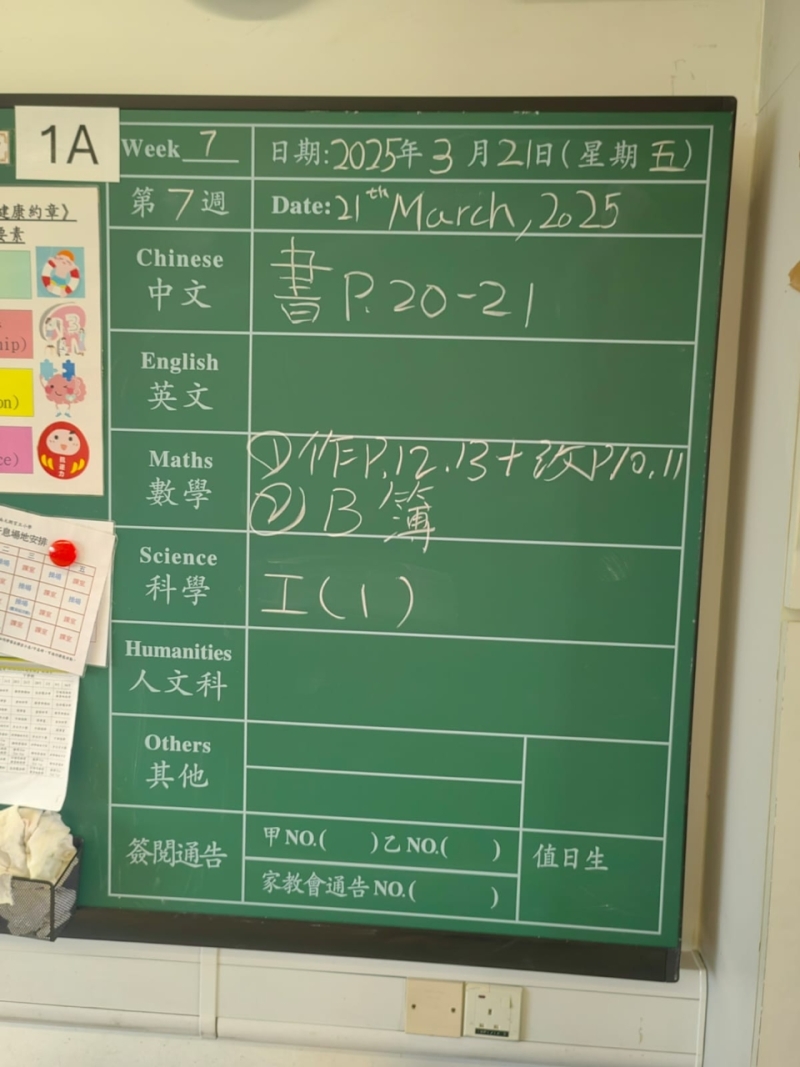 1A
Week 7
日期:2025年3月21日(星期五)
第7週
Date: 21th March, 2025
健康約章》
要素
Chinese
中文
書 P.20-21
English
英文
Maths
數學
①作P.12.13+改P10.11
②B簿
Science
科學
工(1)
Humanities
人文科
Others
其他
簽閱通告
甲NO.( )乙NO.( )
家教會通告NO.( )
值日生
ship)
on)
ce)
息場地安排